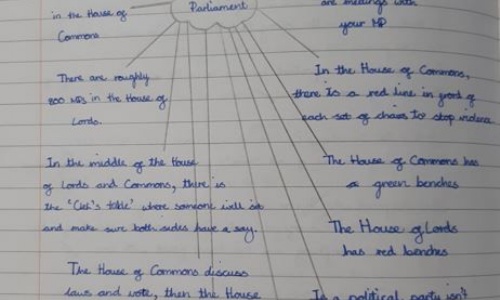 Parliament
in the House of
Commons
There are roughly
800 MPs in the House of
Lords.
In the middle of the House
of Lords and Commons, there is
the "Clerk's table" where someone will sit
and make sure both sides have a say.
The House of Commons discuss
laws and vote, then the House
are meetings with
your MP
In the House of Commons,
there is a red line in front of
each set of chairs to stop
The House of Commons has
a green benches
The House of Lords
has red benches
a political party isn't